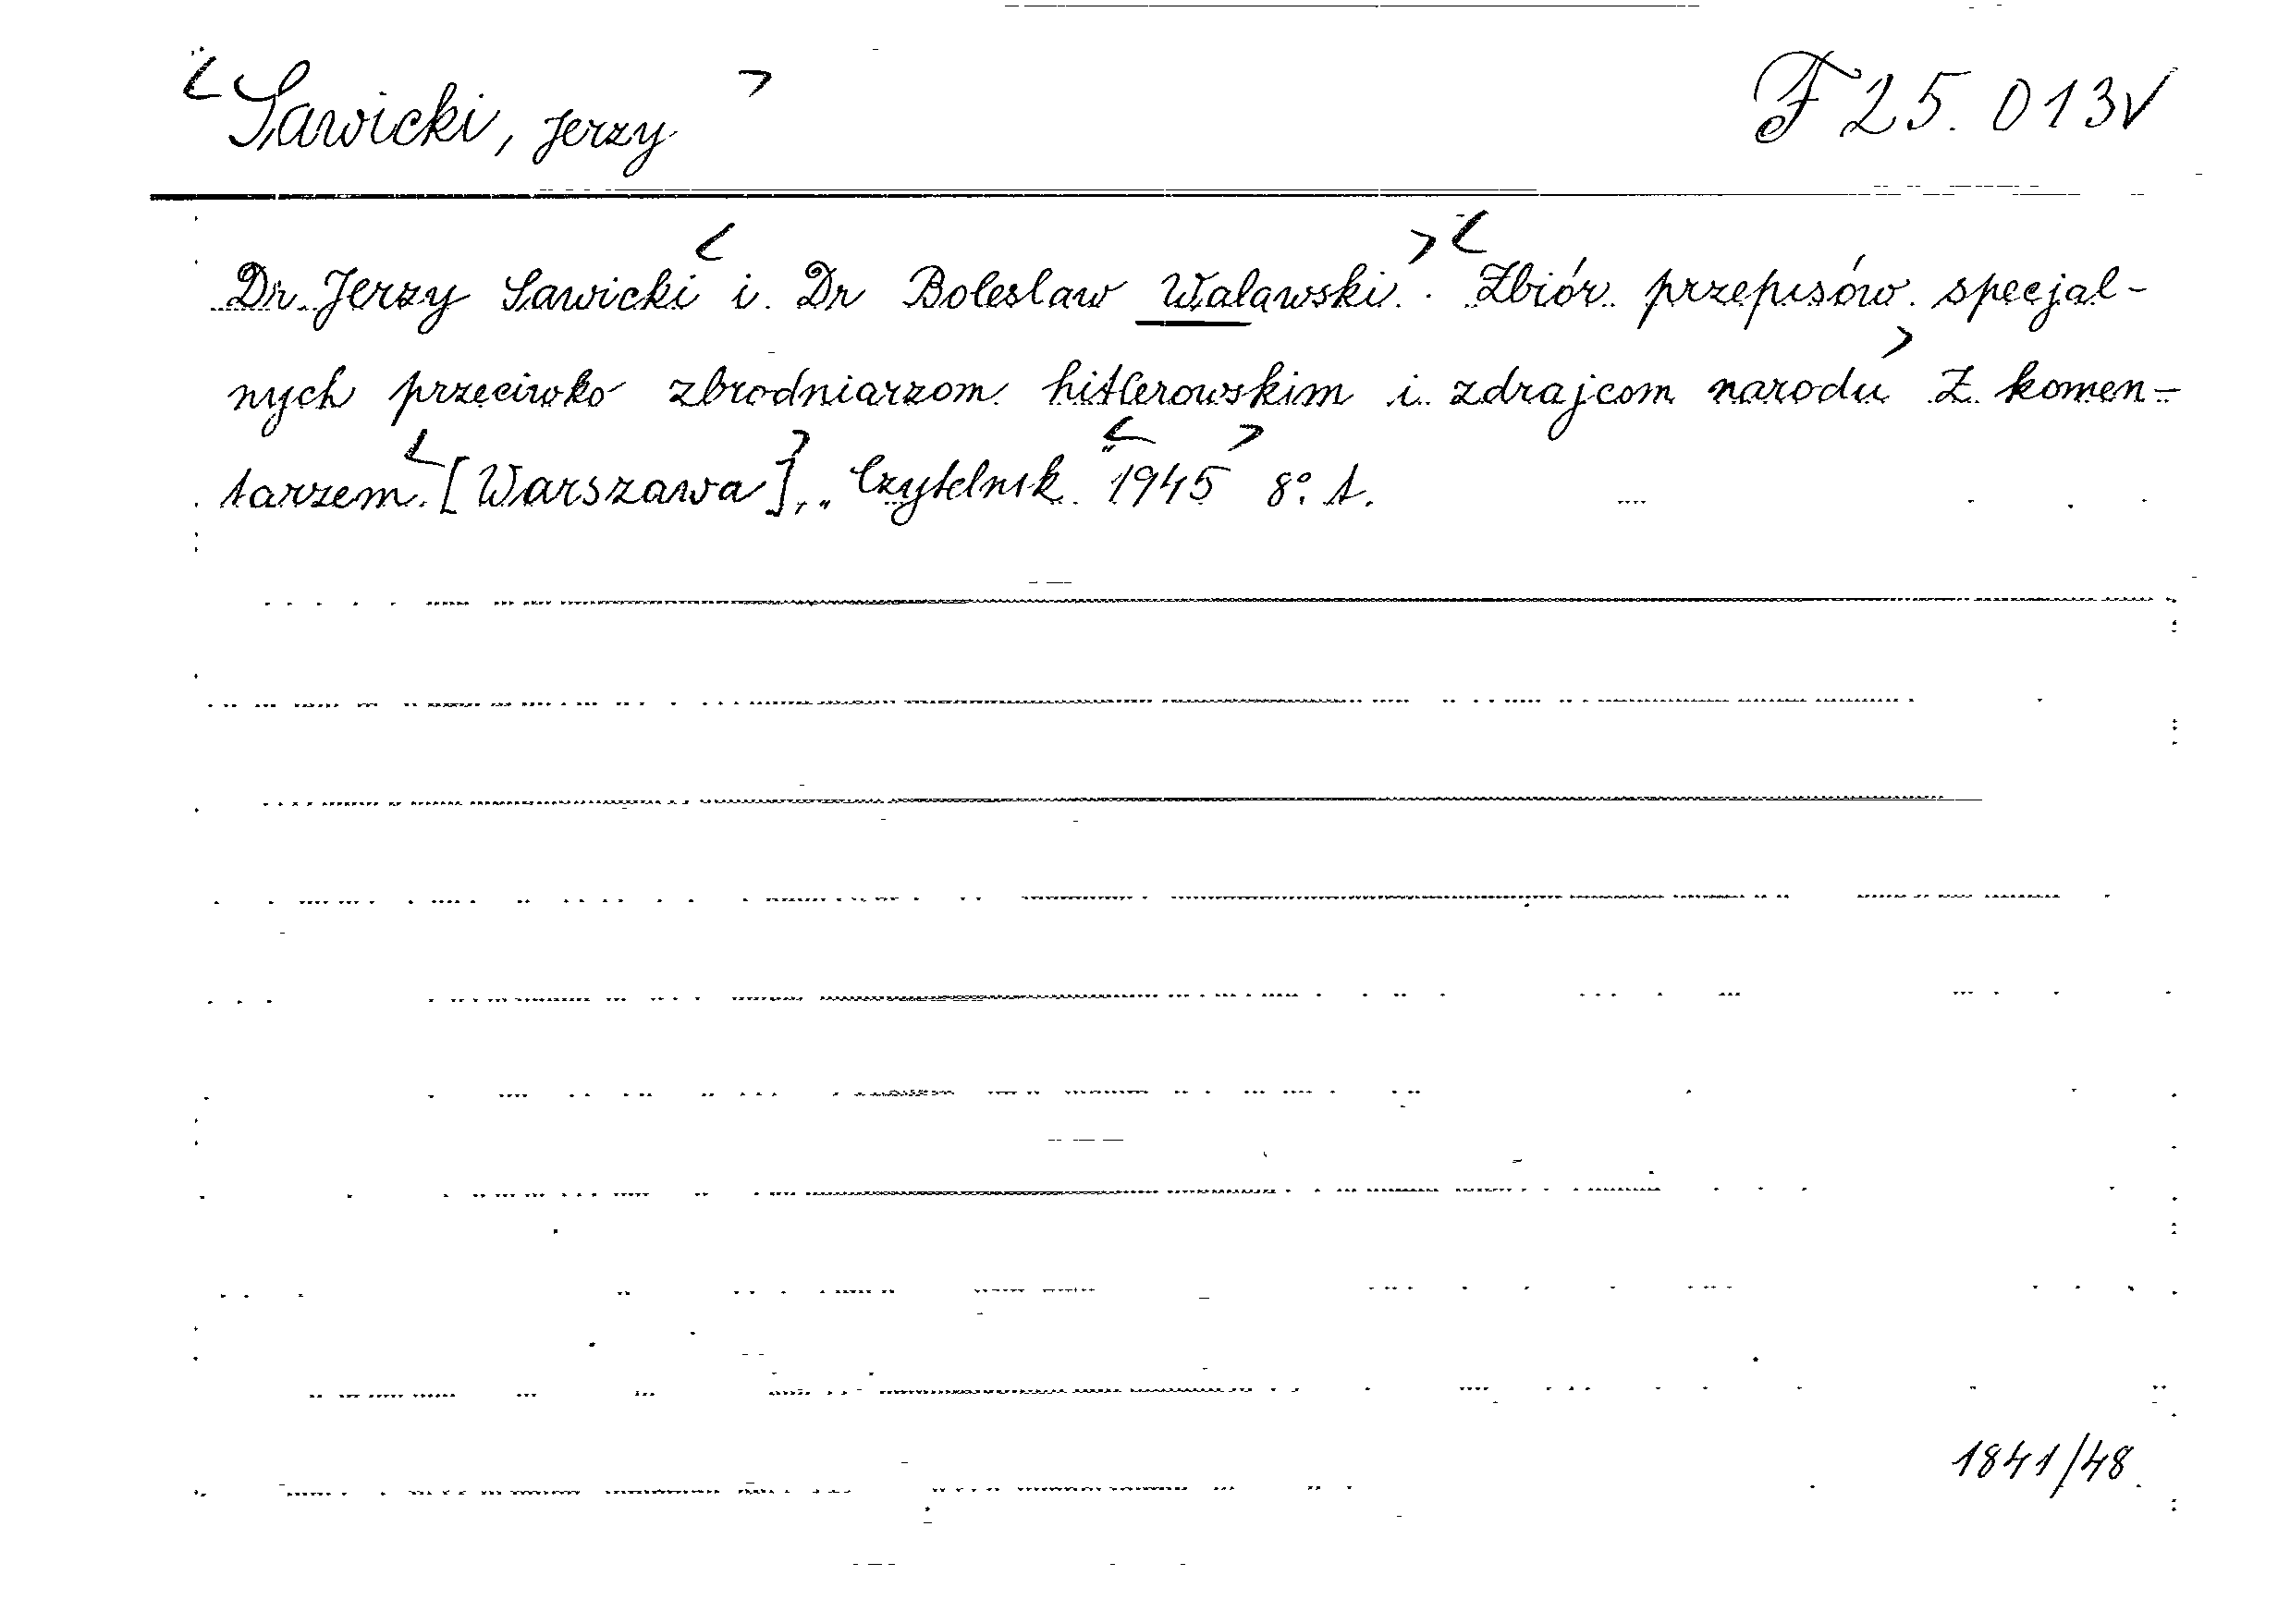 <Sawicki, Jerzy> F 25.013V
Dr Jerzy Sawicki <i Dr Boleslaw Walawski.> <Zbiór przepisów specjal-
nych przeciwko zbrodniarzom hitlerowskim i zdrajcom narodu> Z komen-
tarzem. <[Warszawa]>, „Czytelnik" <1945> 8° t.
1841/48